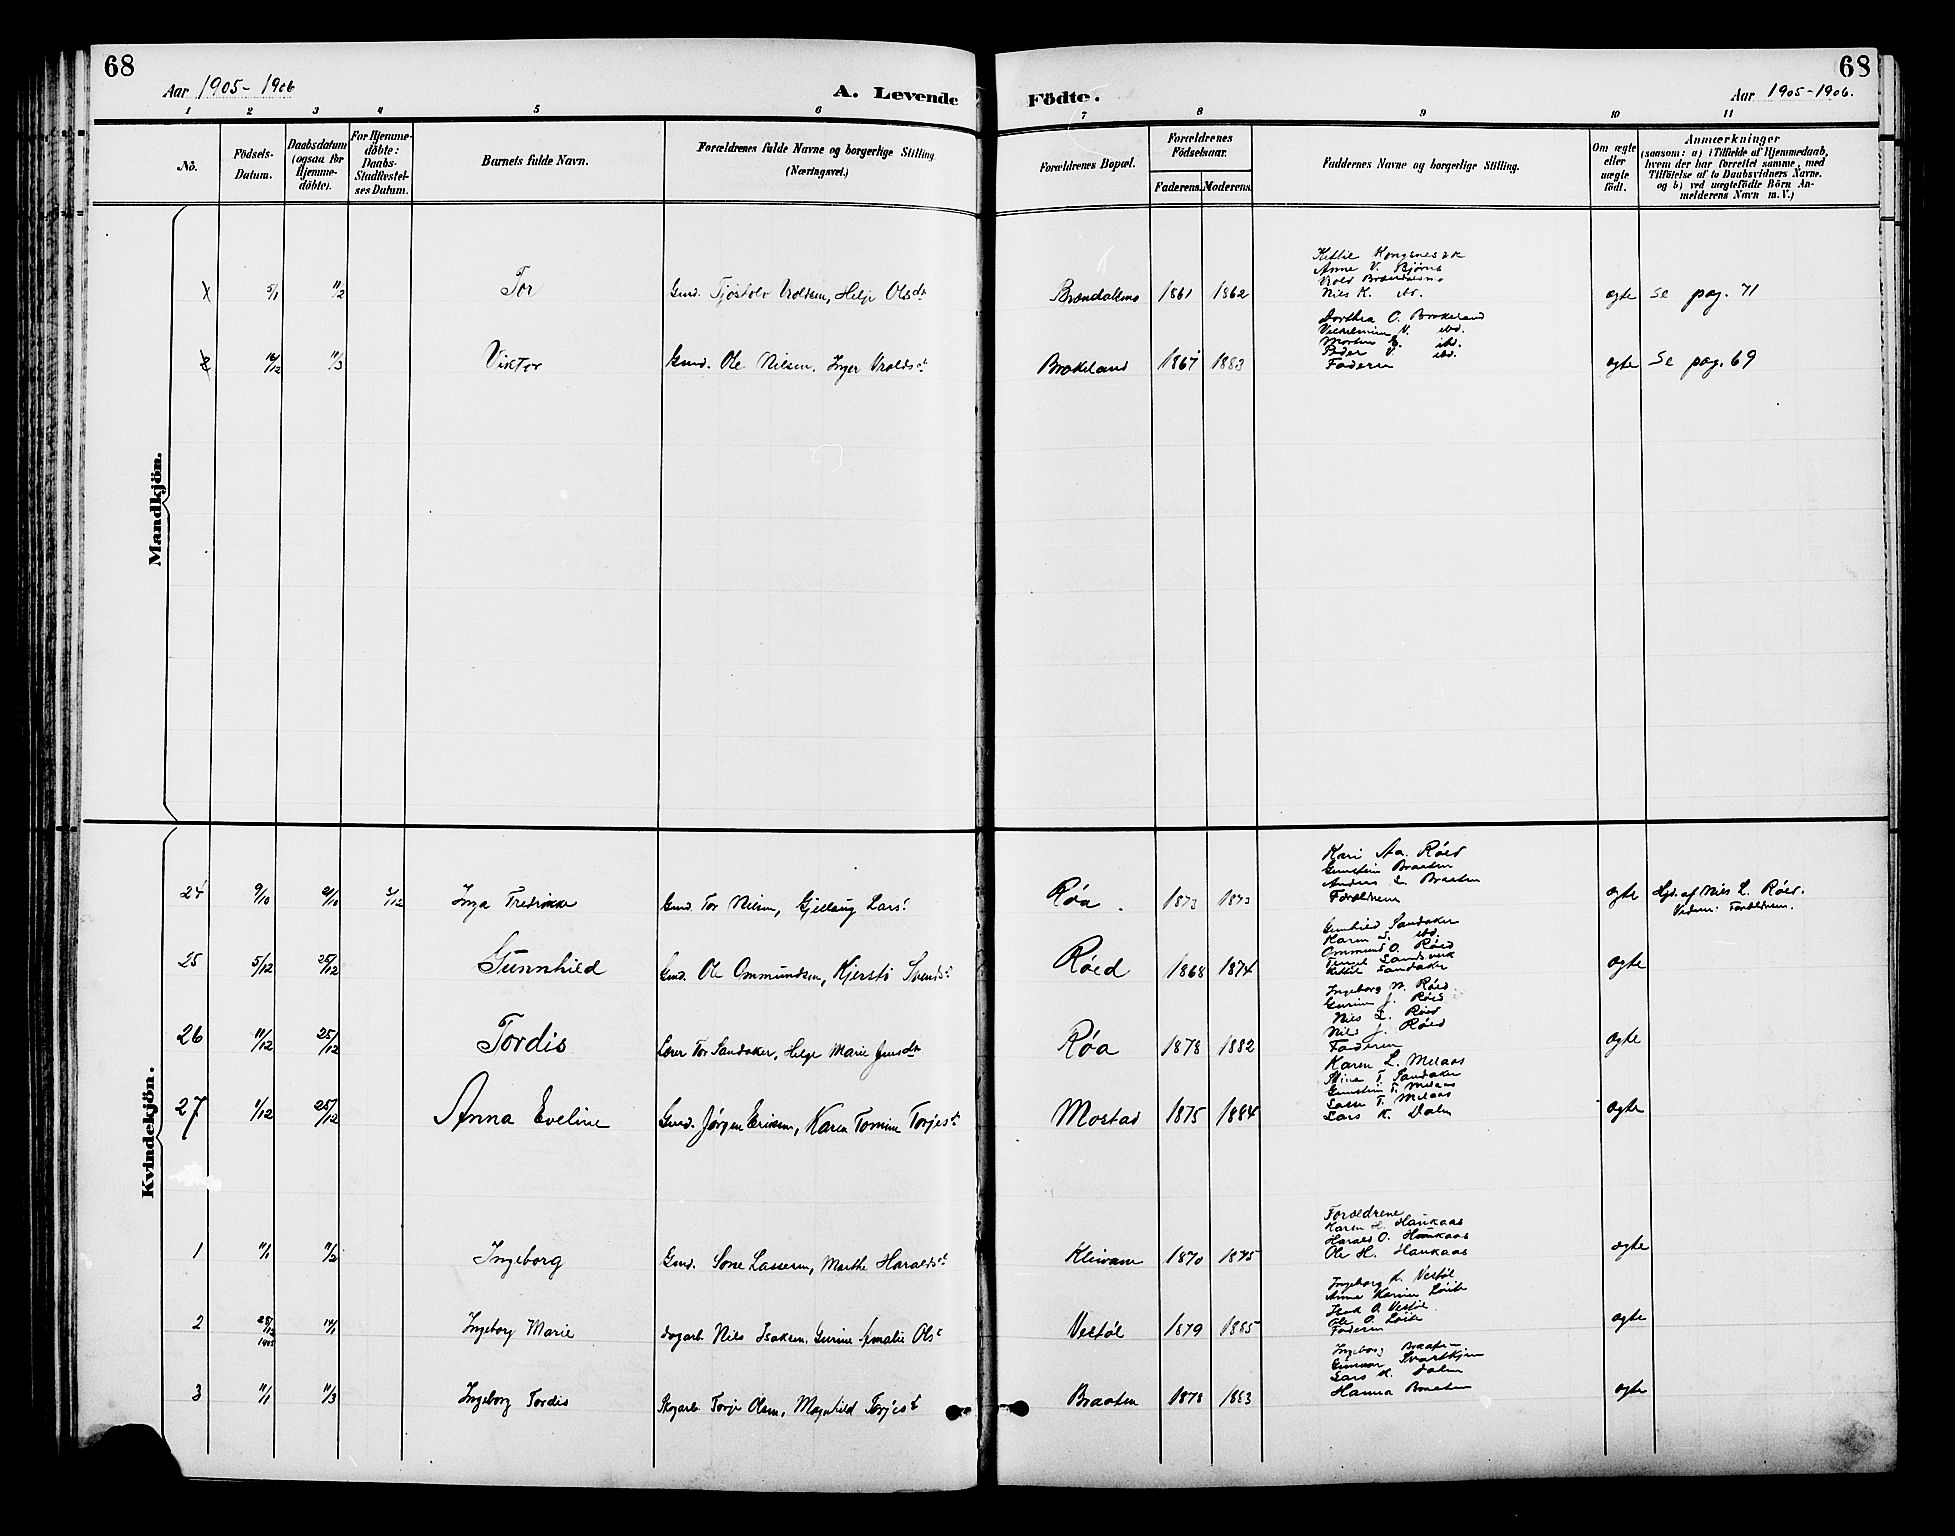 68
Aar 1905-1906
A. Levende
Födte.
Aar 1905-1906.
68
1 2 3 4 5 6 7 8 9 10 11
No.
Födsels-
Datum.
Daabsdatum
(ogsaa for
Hjemme-
döbte).
For Hjemme-
döbte:
Daabs-
Stadfæstel-
ses Datum.
Barnets fulde Navn.
Forældrenes fulde Navne og borgerlige Stilling
(Næringsvei.)
Forældrenes Bopæl.
Forældrenes
Födselsaar.
Faderens. Moderens.
Faddernes Navne og borgerlige Stilling.
Om ægte
eller
uægte
födt.
Anmærkninger
(saasom: a) i Tilfælde af Hjemmedaab,
hvem der har forrettet samme, med
Tilföielse af to Daabsvidners Navne.
og b) ved uægtefödte Börn An-
melderens Navn m. V.)
Mandkjön.
1 5/1 11/2 Tor Gmd. Tjöstolv Vroldsen, Helje Olsdt Brændalsmo 1861 1862 ægte Se pag. 71
Anne V. Bjørns
Nils K. ibd.
2 16/12 11/3 Viktor Gmd. Ole Nielsen, Inger Vroldsdt Brækeland 1867 1883 ægte Se pag. 69
Dorthea O. Brækeland
Vilhelmine V. ibd.
Peder V. ibd.
Faderen
Kvindekjön.
24 9/10 21/10 3/12 Inga Fredrikke Gmd. Tor Nilsen, Gjellaug Larsd. Røa. 1873 1873 ægte Hjd. af Nils L. Røed.
Vidner: Forældrene.
Kari Aa. Røed
Gunstein Braaten
Anders L. Braaten
Forældrene
25 5/12 25/12 Gunnhild Gmd. Ole Ommundsen, Kjerstø Svendsd. Røed 1868 1874 ægte
Gunhild Sandaker
Karen S. ibd.
Ommund O. Røed
Kittil Sandaker
26 11/12 25/12 Tordis Lærer Tor Sandaker, Helge Marie Jensdt Røa 1878 1882 ægte
Ingeborg N. Røed
Gurine J. Røed
Nils L. Røed
Nils J. Røed
Faderen
27 1/12 25/12 Anna Eveline Gmd. Jørgen Eriksen, Karen Tomine Torjesd. Mostad 1875 1884 ægte
Karen L. Melaas
Stina T. Sandaker
Gunstein T. Melaas
Lasse T. Melaas
Lars K. Dalen
1 11/1 11/2 Ingeborg Gmd. Sone Lassesen, Marthe Haraldsd. Kleivane 1870 1875 ægte
Forældrene
Karen H. Haukaas
Harald O. Haukaas
Ole H. Haukaas
2 28/12 1905 14/1 Ingeborg Marie Dagarb. Nils Isaksen, Gurine Amalie Olsd. Vestøl 1879 1885 ægte
Ingeborg K. Vestøl
Isak O. Vestøl
Faderen
3 11/1 11/3 Ingeborg Tordis Skogarb. Torje Olsen, Magnhild Torjesd. Braaten 1878 1883 ægte
Ingeborg Braaten
Gunnar Svartkjen
Lars K. Dalen
Hanna Braaten